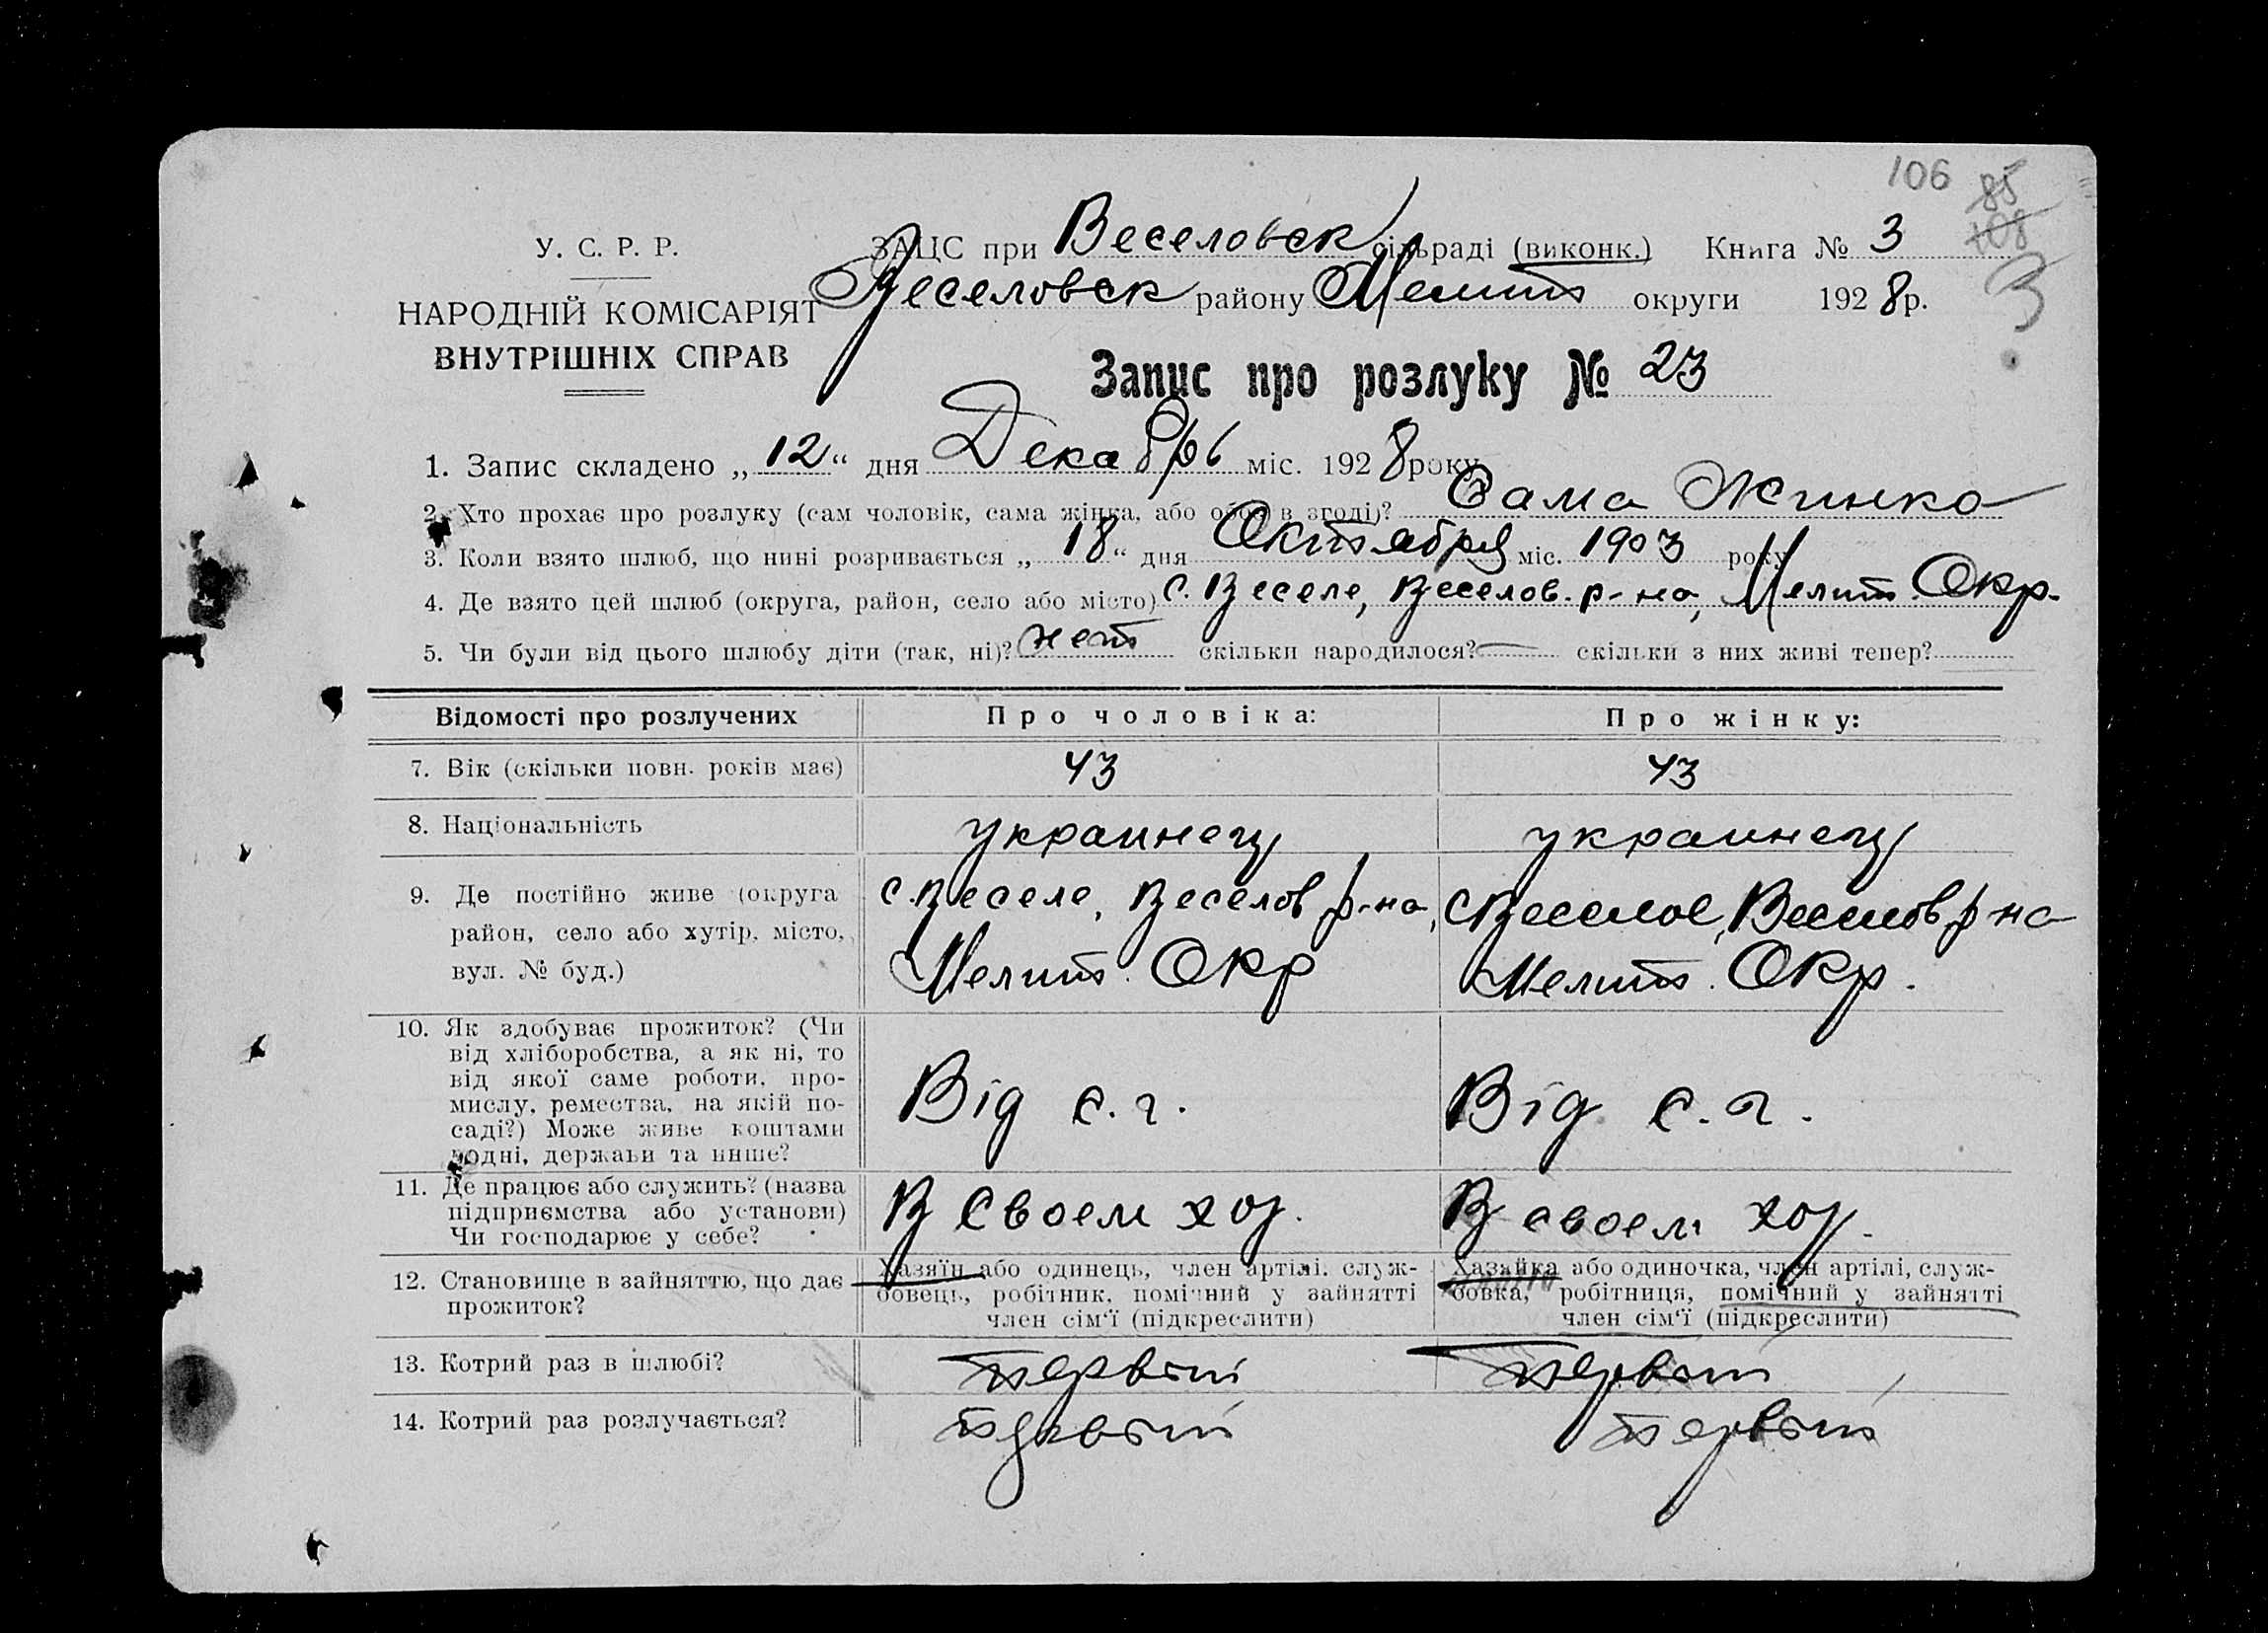 106
85
108
У. С. Р. Р.
ЗАЦС при Веселовск сільраді (виконк.) Книга № 3
3
НАРОДНІЙ КОМІСАРІЯТ
Веселовск району Мелит округи 1928 р.
ВНУТРІШНІХ СПРАВ
Запис про розлуку № 23
1. Запис складено „12“ дня Декабрь міс. 1928 року
2. Хто прохає про розлуку (сам чоловік, сама жінка, або обоє в згоді)? Сама Жинка
3. Коли взято шлюб, що нині розривається „18“ дня Октября міс. 1903 року
4. Де взято цей шлюб (округа, район, село або місто) с. Веселе, Веселов. р-на, Мелит Окр.
5. Чи були від цього шлюбу діти (так, ні)? нет скільки народилося? — скільки з них живі тепер?
Відомості про розлучених Про чоловіка: Про жінку:
7. Вік (скільки повн. років має) 43 43
8. Національність украинец украинец
9. Де постійно живе (округа с. Веселе, Веселов р-на, с Веселое, Веселов р-на
район, село або хутір, місто, Мелит. Окр Мелит. Окр.
вул. № буд.)
10. Як здобуває прожиток? (Чи
від хліборобства, а як ні, то
від якої саме роботи, про- Від с. г. Від с. г.
мислу, ремества, на якій по-
саді?) Може живе коштами
родні, держави та инше?
11. Де працює або служить? (назва В своем хоз. В своем хоз.
підприємства або установи)
Чи господарює у себе?
12. Становище в зайняттю, що дає Хазяїн або одинець, член артілі, служ- Хазяйка або одиночка, член артілі, служ-
прожиток? бовець, робітник, помічний у зайнятті бовка, робітниця, помічний у зайнятті
член сім'ї (підкреслити) член сім'ї (підкреслити)
13. Котрий раз в шлюбі? первый первый
14. Котрий раз розлучається? первый первый